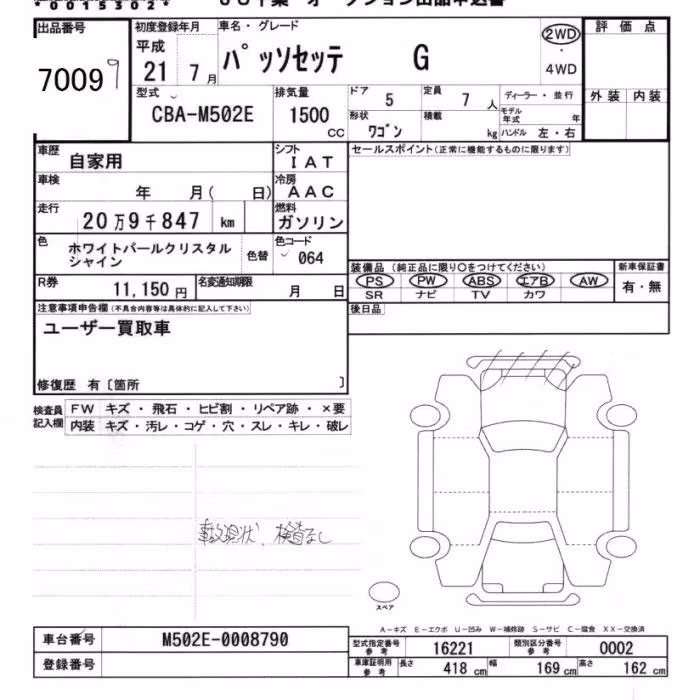 *00153020*
出品番号
70099
初度登録年月
平成
21 7月
車名・グレード
パッソセッテ G
2WD
・
4WD
評価点
外装 内装
型式
CBA-M502E
排気量
1500
cc
ドア
5
定員
7 人
形状
ワゴン
積載
kg
ディーラー・並行
モデル年式 年
ハンドル 左・右
車歴
自家用
シフト
IAT
セールスポイント(正常に機能するものに限ります)
車検
年 月( 日)
冷房
AAC
走行
20万9千847 km
燃料
ガソリン
色
ホワイトパールクリスタル
シャイン
色替
色コード
064
R券
11,150円
名変通知期限
月 日
装備品 (純正品に限り○をつけてください)
新車保証書
PS PW ABS エアB AW
SR ナビ TV カワ
有・無
後日品
注意事項申告欄(不具合内容等は具体的に記入して下さい)
ユーザー買取車
修復歴 有〔箇所 〕
検査員
記入欄
FW キズ・飛石・ヒビ割・リペア跡・×要
内装 キズ・汚レ・コゲ・穴・スレ・キレ・破レ
事故現状、検査なし
スペア
A−キズ E−エクボ U−凹み W−補修跡 S−サビ C−腐食 XX−交換済
車台番号 M502E-0008790
登録番号
型式指定番号
参考
16221
類別区分番号
参考
0002
車庫証明用
参考
長さ 418 cm 幅 169 cm 高さ 162 cm